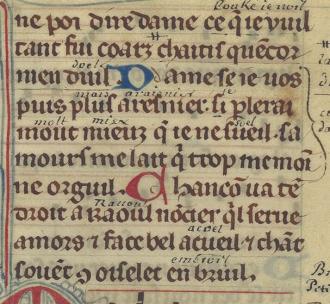 Bouke ie noil
ne poi dire dame ce q ie vuil
tant fui coarz chaitis quencor
doel
men duil Dame se ie uos
mais araisnier ie
puis plus aresnier. si plerai
molt miex soel
mout mieuz q ie ne sueil. sa
mours me lait q trop me mon
ne orguil. Chancon ua te
Raccoul
droit a raoul noctier ql serue
acoel
amors ⁊ face bel acueil ⁊ chãt
embroil
souẽt ꝯ oiselet en bruil.